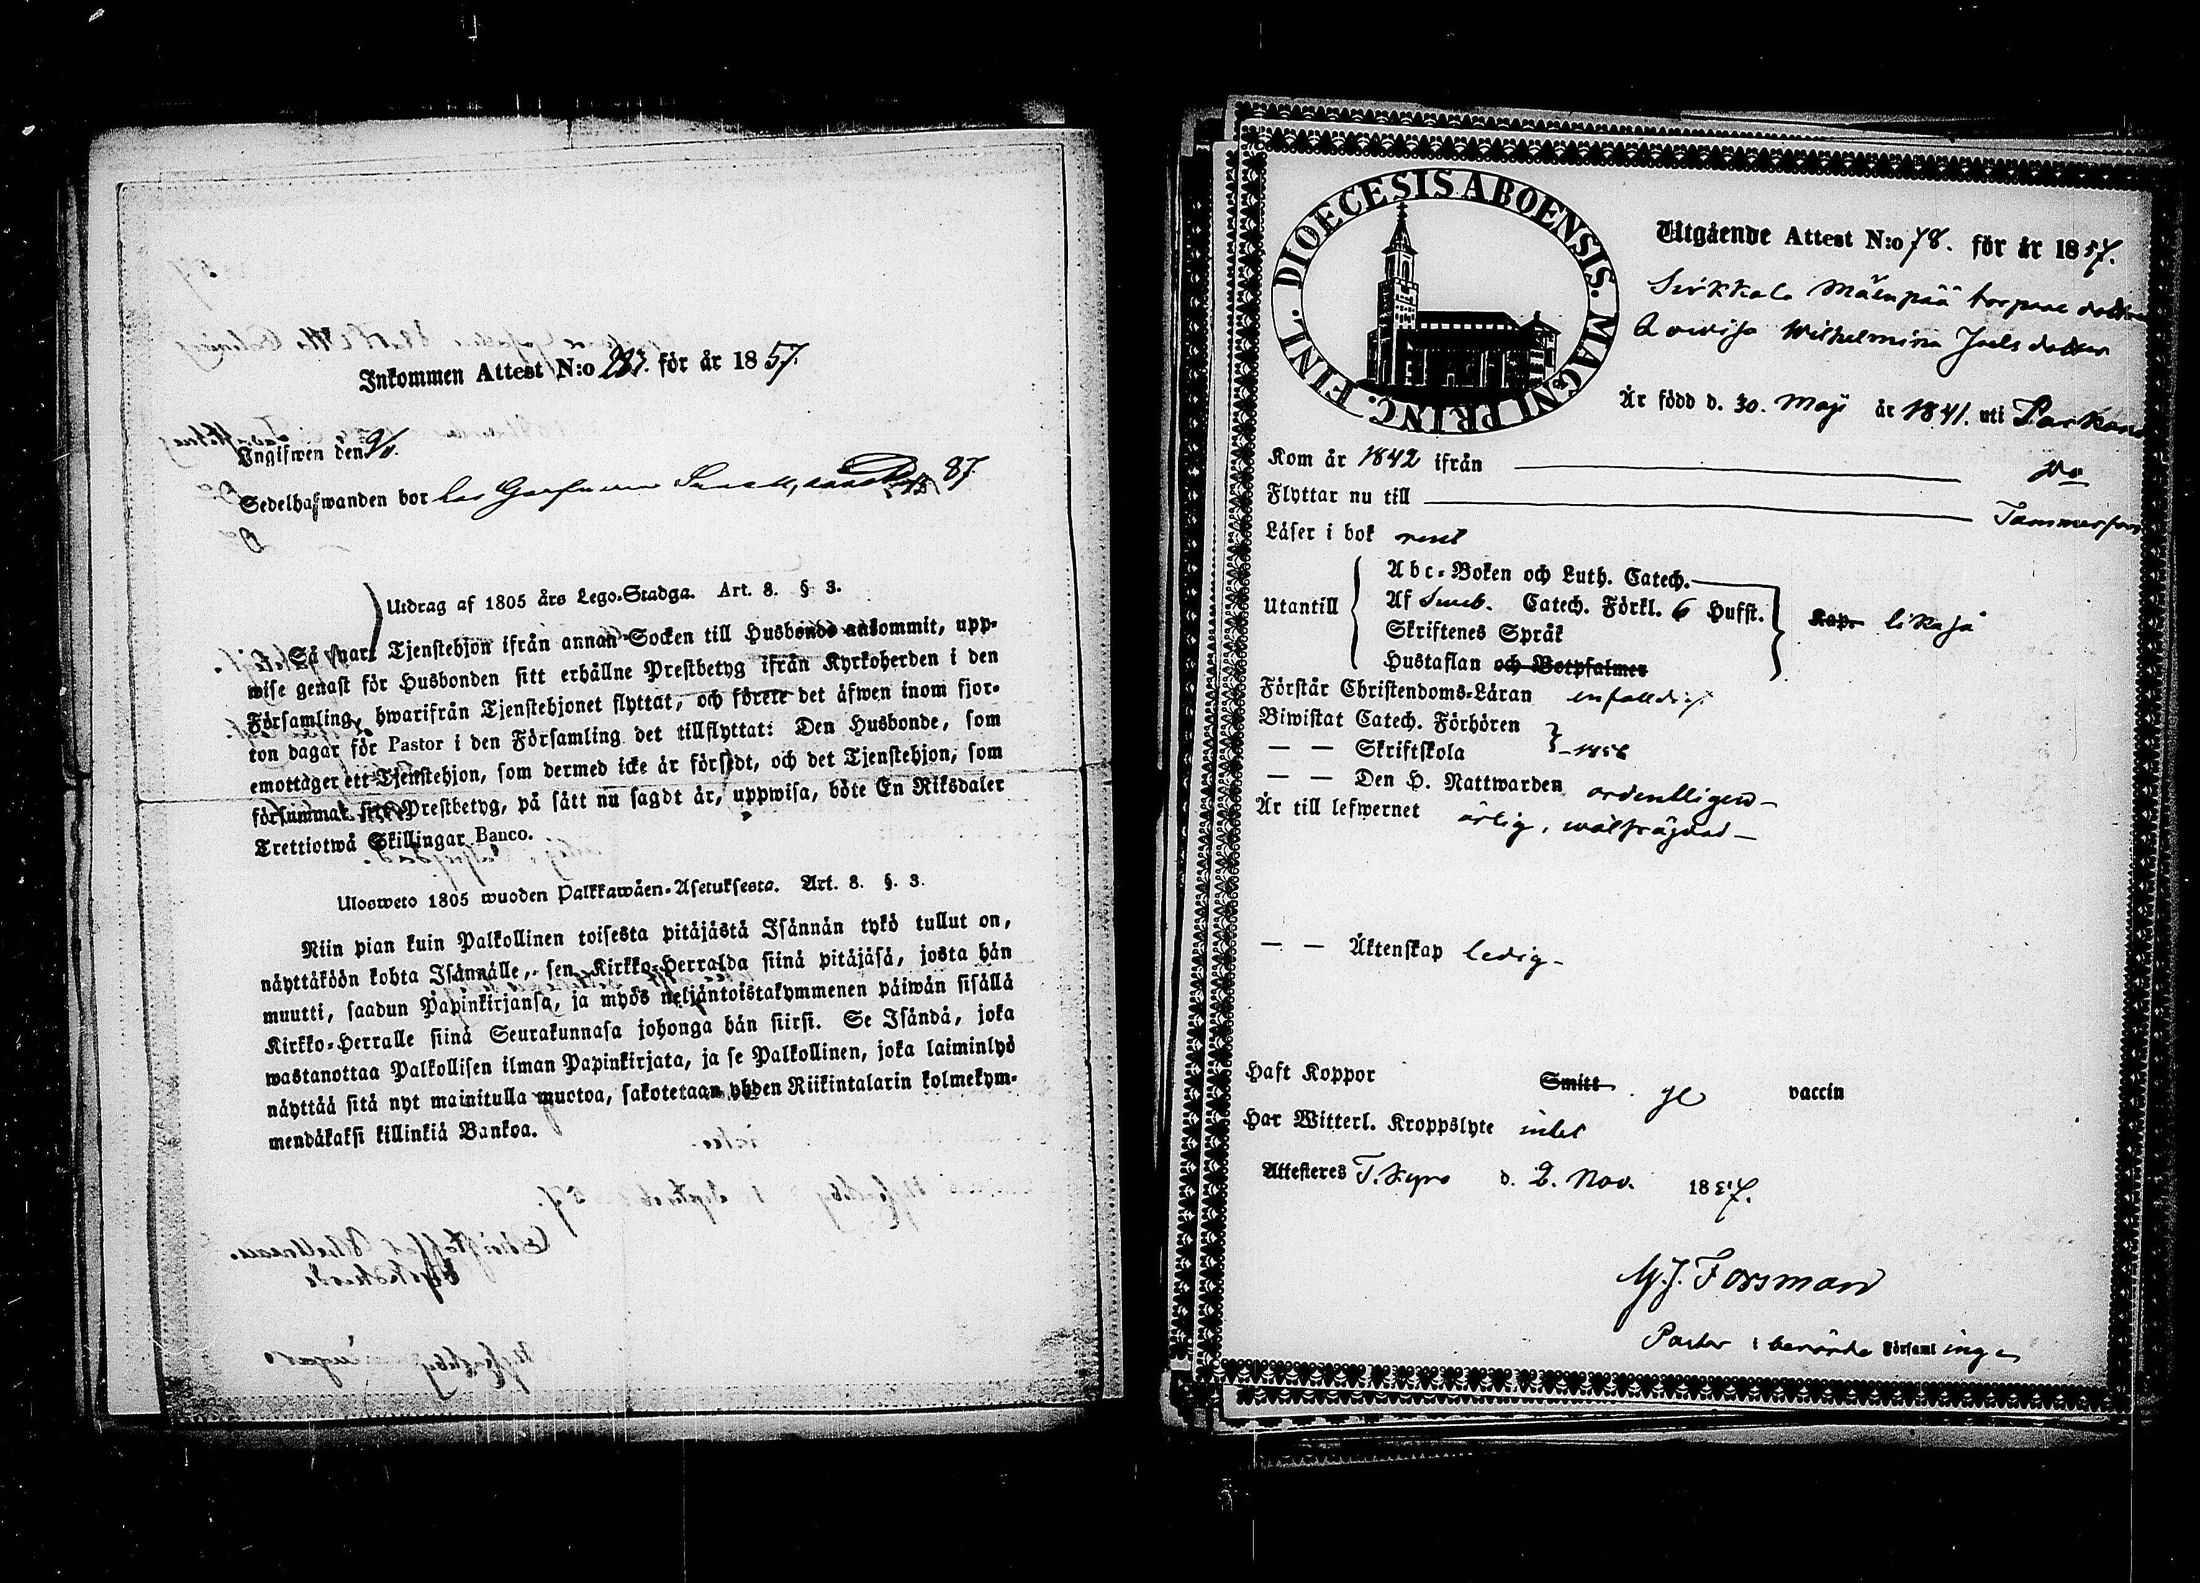 Inkommen Attest N:o 237. för år 1857.
Ingifwen den 9/11.
Sedelhafwanden bor hos 87.
Utdrag af 1805 års Lego-Stadga. Art. 8. § 3.
Så snart Tjenstehjon ifrån annan Socken till Husbonde ankommit, upp-
wise genast för Husbonden sitt erhållne Prestbetyg ifrån Kyrkoherden i den
Församling, hwarifrån Tjenstehjonet flyttat, och förete det äfwen inom fjor-
ton dagar för Pastor i den Församling det tillflyttat: Den Husbonde, som
emottager ett Tjenstehjon, som dermed icke är försedt, och det Tjenstehjon, som
försummar sitt Prestbetyg, på sätt nu sagdt är, uppwisa, böte En Riksdaler
Trettiotwå Skillingar Banco.
Ulosweto 1805 wuoden Palkkawäen-Asetuksesta. Art. 8. §. 3.
Niin pian kuin Palkollinen toisesta pitäjästä Isännän tykö tullut on,
näyttäköön kohta Isännälle, sen Kirkko-Herralda siinä pitäjäsä, josta hän
muutti, saadun Papinkirjansa, ja myös neljäntoistakymmenen päiwän sisällä
Kirkko-Herralle siinä Seurakunnasa johonga hän siirsi. Se Isändä, joka
wastanottaa Palkollisen ilman Papinkirjata, ja se Palkollinen, joka laiminlyö
näyttää sitä nyt mainitulla muotoa, sakotetaan yhden Riikintalarin kolmekym-
mendäkaksi killinkiä Bankoa.
DIOECESIS ABOENSIS. MAGNI PRINC. FINL.
Utgående Attest N:o 78. för år 1857.
Sirkkala Mäenpää torpare dotter
Lovisa Wilhelmina Joels dotter
Är född d. 30. Maji år 1841. uti Parkano
Kom år 1842 ifrån Do
Flyttar nu till Tammerfors
Läser i bok rent
Utantill
Abc-Boken och Luth. Catech.
Af Sweb. Catech. Förkl. 6 Hufst. Kap. likaså
Skriftenes Språk
Hustaflan och Botpsalmer
Förstår Christendoms-Läran enfaldigt
Biwistat Catech. Förhören
— — Skriftskola 1856
— — Den H. Nattwarden ordentligen
Är till lefwernet ärlig, wälfrägdad
— — Äktenskap ledig
Haft Koppor Smitt vaccin
Har Witterl. Kroppslyte intet
Attesteres T. Kyro d. 2. Nov. 1857.
M. J. Forsman
Pastor i berörde Församlingen